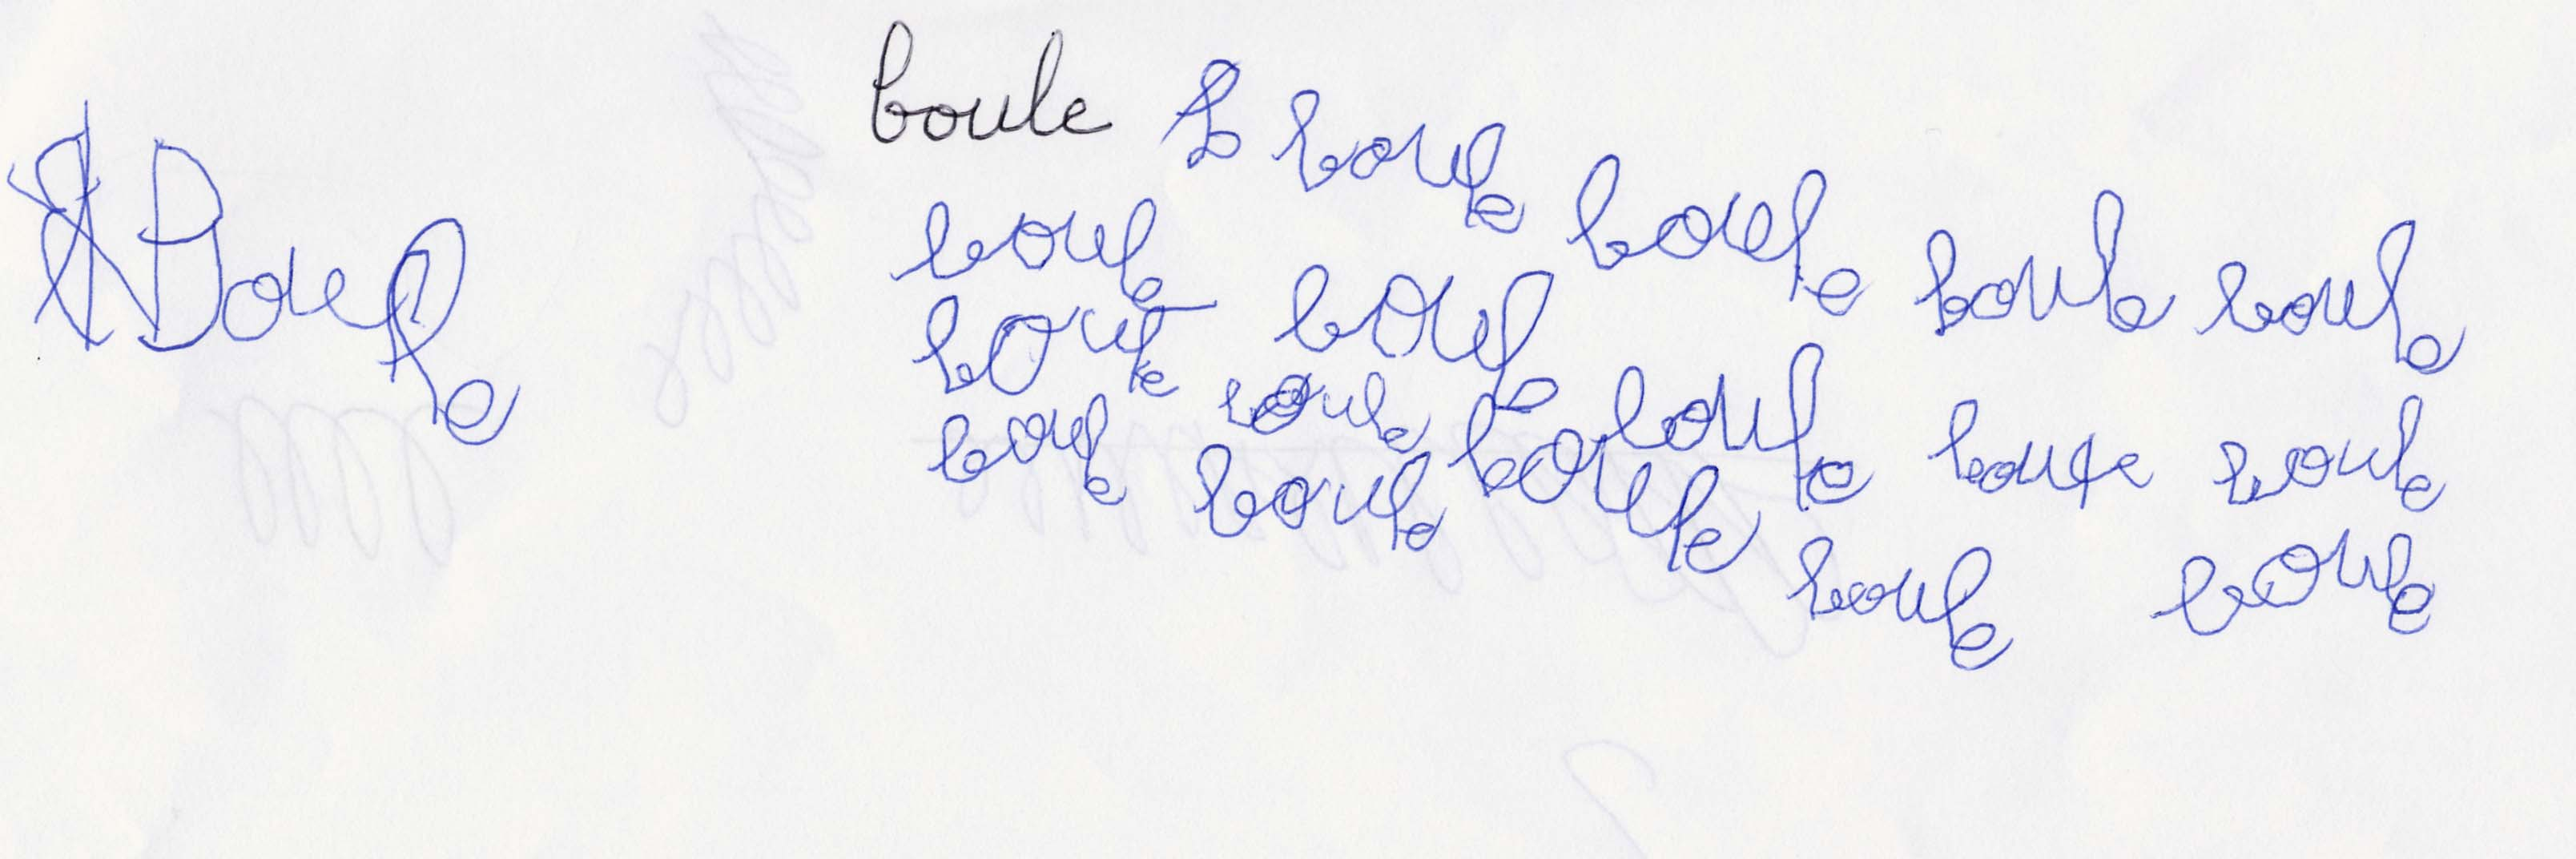 boule b boule boule boule boule
Boule
boule
boule boule
boule boule boule boule boule boule
boule boule
boule boule